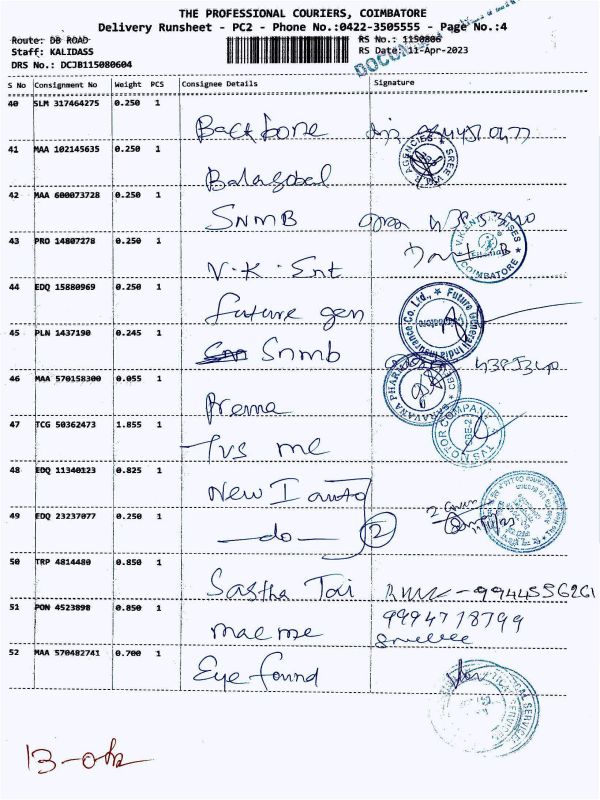 THE PROFESSIONAL COURIERS, COIMBATORE
Delivery Runsheet - PC2 - Phone No.:0422-3505555 - Page No.:4
Route: DB ROAD RS No.: 1150806
Staff: KALIDASS RS Date: 11-Apr-2023
DRS No.: DCJB115080604
S No Consignment No Weight PCS Consignee Details Signature
40 SLM 317464275 0.250 1
Backbone
41 MAA 102145635 0.250 1
Balagobal
42 MAA 600073728 0.250 1
SNMB
43 PRO 14807278 0.250 1
V.K. Ent
44 EDQ 15880969 0.250 1
future gen
45 PLN 1437190 0.245 1
Snmb
46 MAA 570158300 0.055 1
Prema
47 TCG 50362473 1.855 1
Tvs mc
48 EDQ 11340123 0.825 1
New I auto
49 EDQ 23237077 0.250 1
—do— 2
50 TRP 4814480 0.850 1
Sastha Tai - 9944556261
51 PON 4523898 0.850 1
9994718799
52 MAA 570482741 0.700 1
Eye found
13-